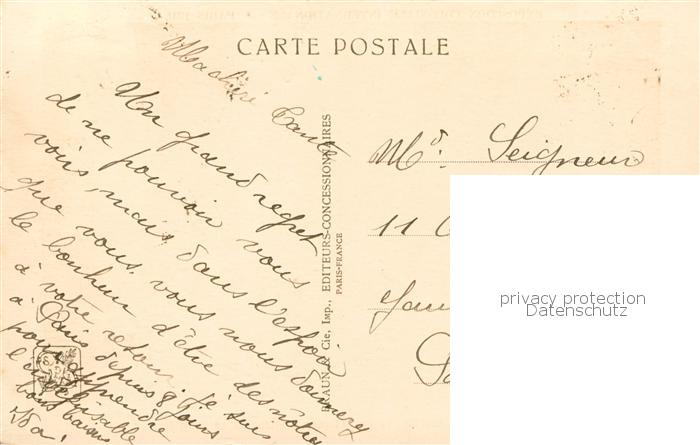 CARTE POSTALE
Ma chère Tante
Un grand regret
de ne pouvoir vous
voir, mais dans l'espoir
que vous, vous nous donnerez
le bonheur d'être des nôtres
à votre retour. Je suis
à Paris depuis 8 jours
pour apprendre
l'
bons baisers
BRAUN & Cie, Imp., EDITEURS-CONCESSIONNAIRES
PARIS-FRANCE
Md. Seigneur
11
privacy protection
Datenschutz